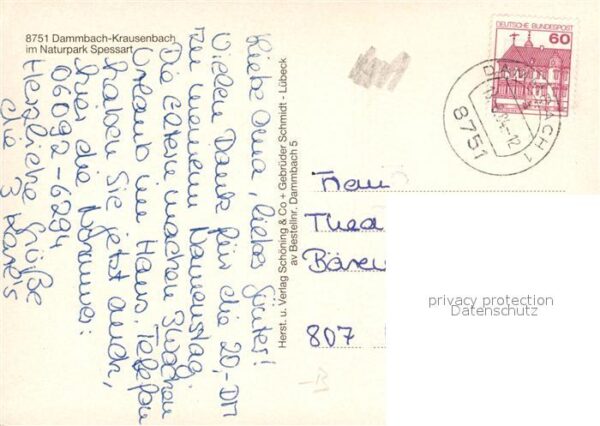 8751 Dammbach-Krausenbach
im Naturpark Spessart
Liebe Oma, lieber Günter!
Vielen Dank für die 20,-DM
zu meinem Namenstag.
Die Eltern machen
Urlaub im Haus. Telefon
haben Sie jetzt auch,
hier die Nummer:
06092-6294
Herzliche Grüße
die 3
Herst. u. Verlag Schöning & Co + Gebrüder Schmidt - Lübeck
av Bestellnr. Dammbach 5
DEUTSCHE BUNDESPOST
60
DAMMBACH 1
8751
Thea
807
privacy protection
Datenschutz